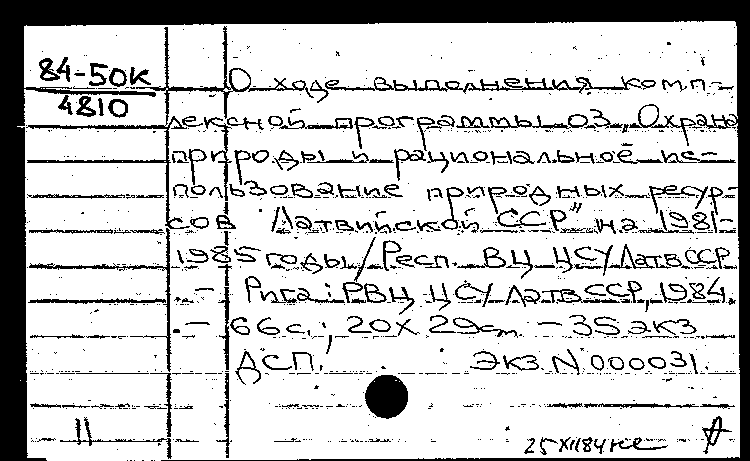 84-50К
4810
О ходе выполнения комп-
лексной программы 03 „Охрана
природы и рациональное ис-
пользование природных ресур-
сов Латвийской ССР" на 1981-
1985 годы / Респ. ВЦ ЦСУ ЛатвССР
.– Рига: РВЦ ЦСУ ЛатвССР, 1984.
.– 66с.; 20х29см. – 35 экз
ДСП. Экз N 000031.
11
25 XII 84